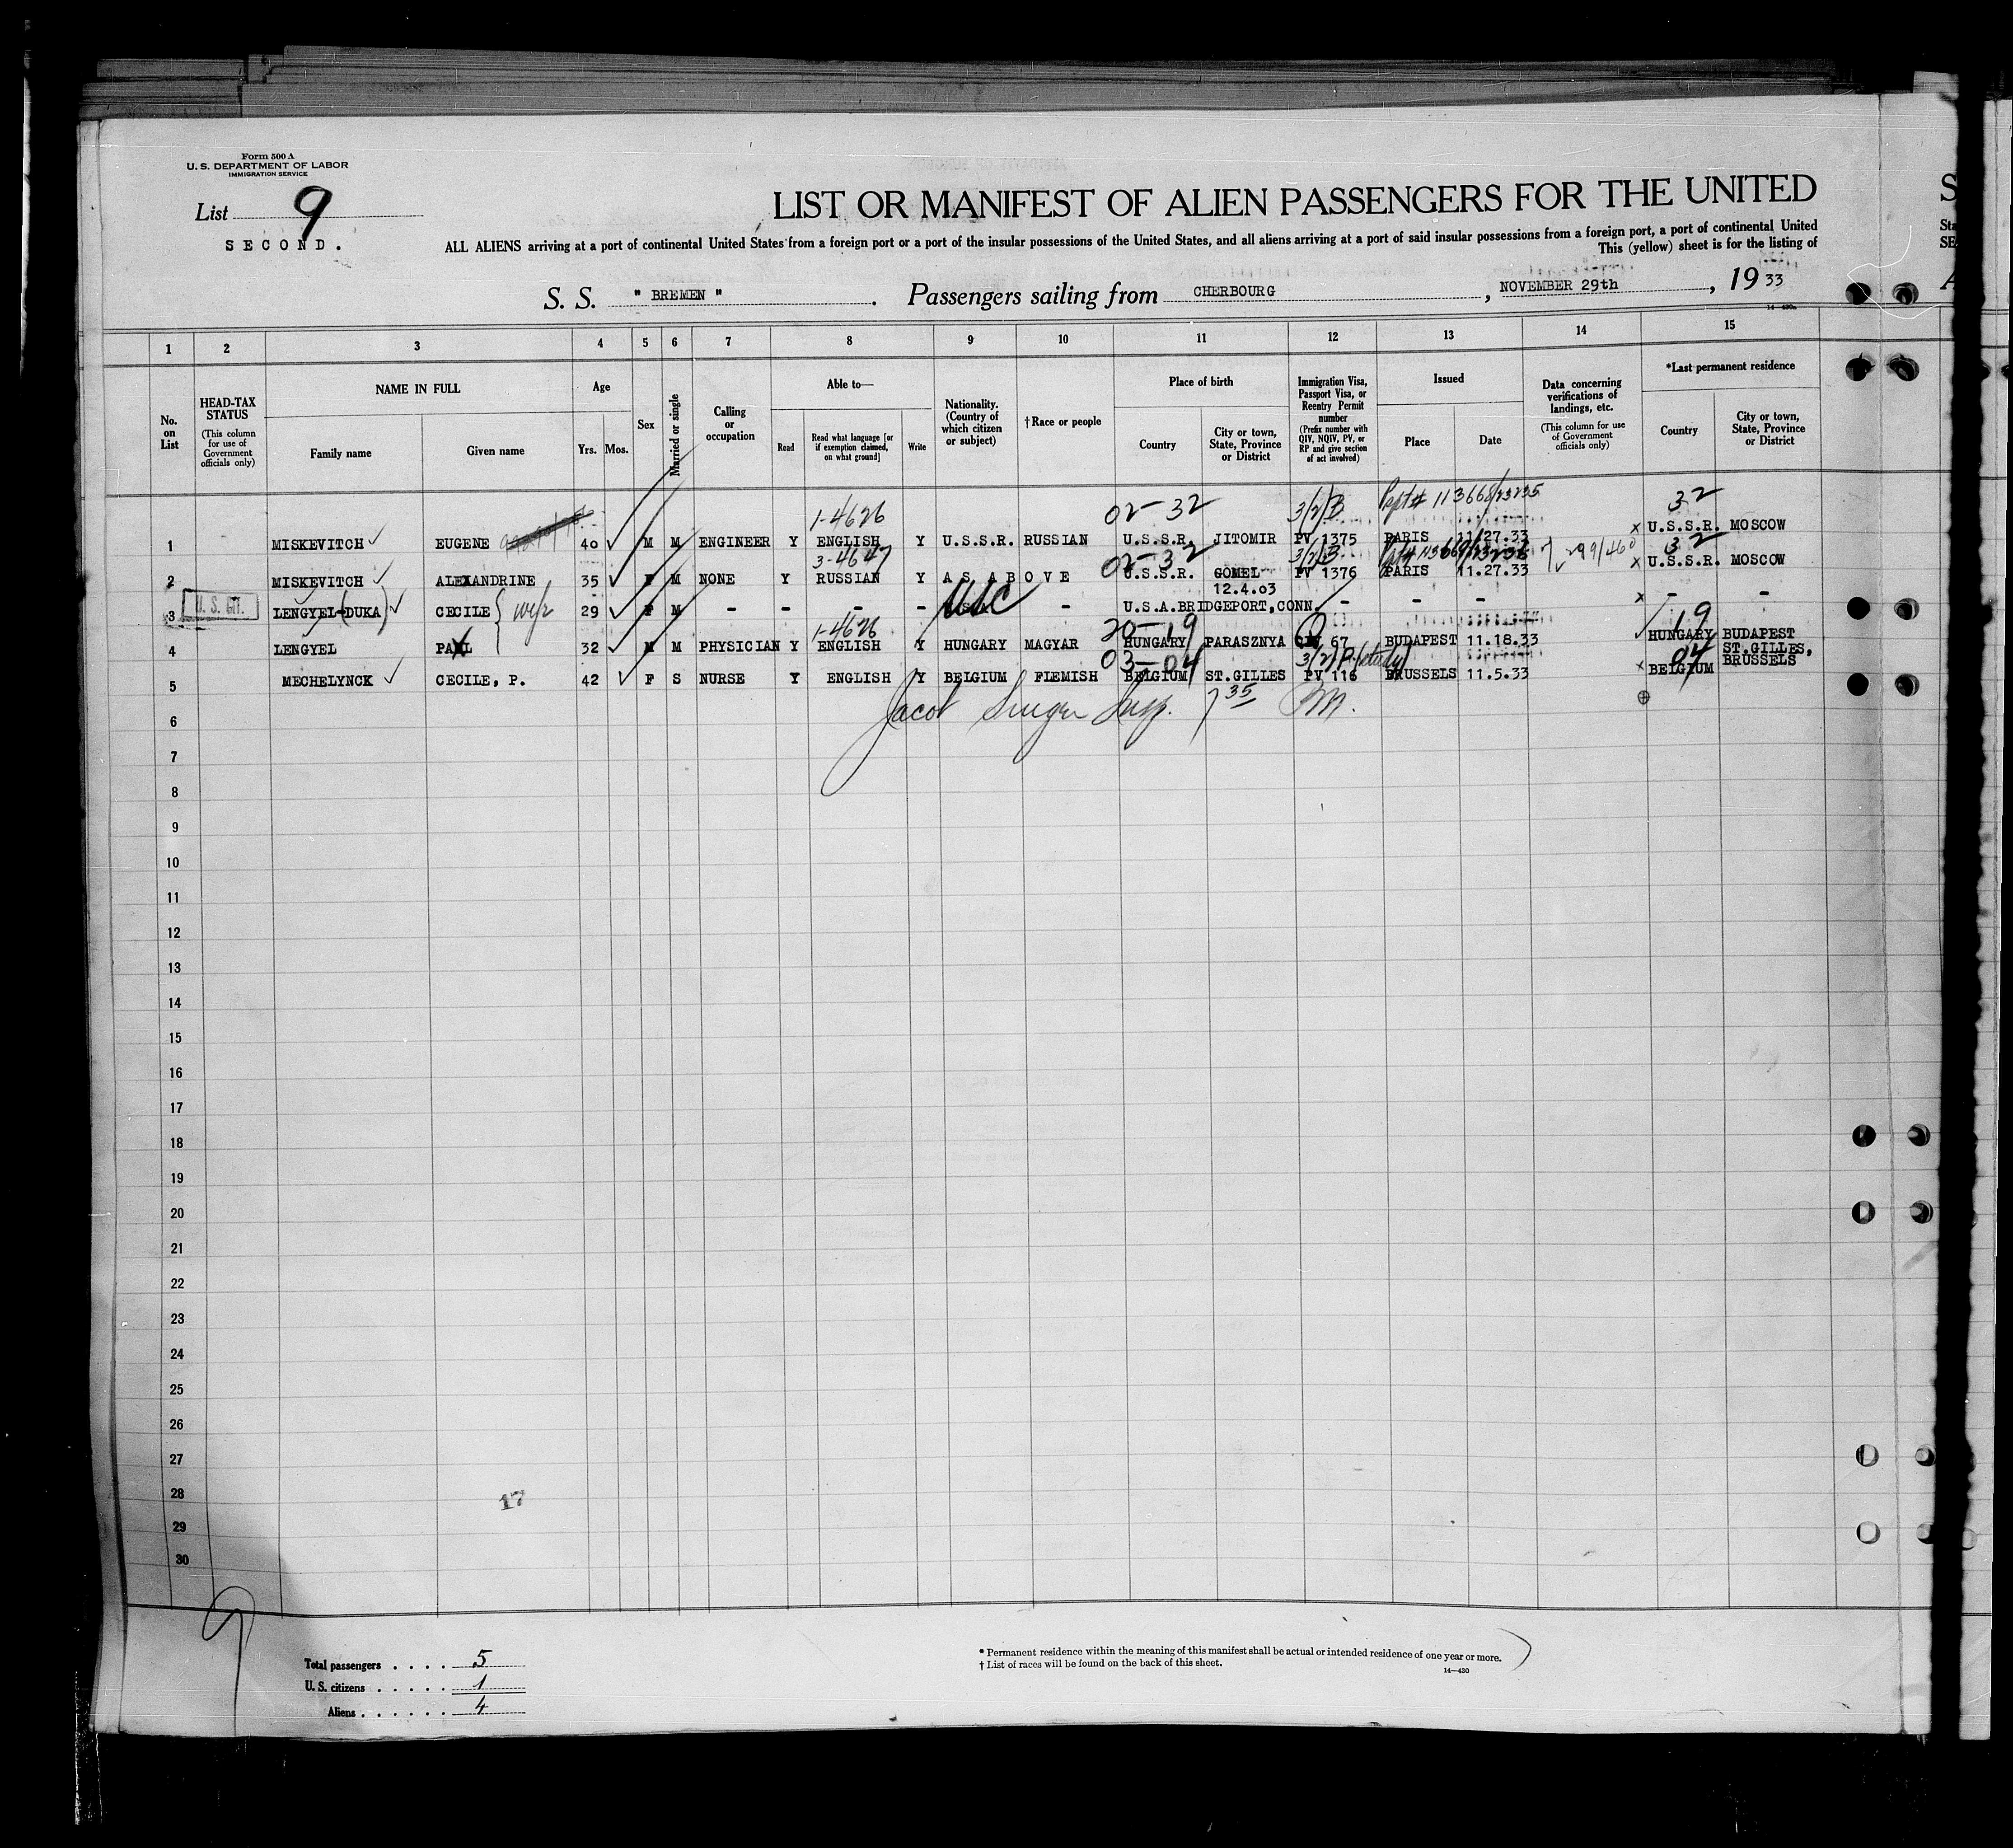 Form 500 A
U. S. DEPARTMENT OF LABOR
IMMIGRATION SERVICE
List 9
SECOND.
LIST OR MANIFEST OF ALIEN PASSENGERS FOR THE UNITED
ALL ALIENS arriving at a port of continental United States from a foreign port or a port of the insular possessions of the United States, and all aliens arriving at a port of said insular possessions from a foreign port, a port of continental United
This (yellow) sheet is for the listing of
S. S. " BREMEN " . Passengers sailing from CHERBOURG , NOVEMBER 29th , 19 33
1 2 3 4 5 6 7 8 9 10 11 12 13 14 15
No. on List
HEAD-TAX STATUS
(This column for use of Government officials only)
NAME IN FULL
Family name Given name
Age
Yrs. Mos.
Sex
Married or single
Calling or occupation
Able to—
Read
Read what language [or if exemption claimed, on what ground]
Write
Nationality. (Country of which citizen or subject)
†Race or people
Place of birth
Country
City or town, State, Province or District
Immigration Visa, Passport Visa, or Reentry Permit number
(Prefix number with QIV, NQIV, PV, or RP and give section of act involved)
Issued
Place Date
Data concerning verifications of landings, etc.
(This column for use of Government officials only)
*Last permanent residence
Country
City or town, State, Province or District
1-4626 02-32 3/2/B 32
1 MISKEVITCH EUGENE 40 M M ENGINEER Y ENGLISH Y U.S.S.R. RUSSIAN U.S.S.R. JITOMIR PV 1375 PARIS 11/27.33 x U.S.S.R. MOSCOW
3-4647 02-32 3/2/B 32
2 MISKEVITCH ALEXANDRINE 35 F M NONE Y RUSSIAN Y AS ABOVE U.S.S.R. GOMEL PV 1376 PARIS 11.27.33 x U.S.S.R. MOSCOW
12.4.03
U. S. CIT.
3 LENGYEL-(DUKA) CECILE 29 F M - - - - USC - U.S.A. BRIDGEPORT, CONN. - - - x - -
1-4626 20-19 19
4 LENGYEL PAUL 32 M M PHYSICIAN Y ENGLISH Y HUNGARY MAGYAR HUNGARY PARASZNYA 67 BUDAPEST 11.18.33 HUNGARY BUDAPEST
03-04 04 ST.GILLES,
5 MECHELYNCK CECILE, P. 42 F S NURSE Y ENGLISH Y BELGIUM FLEMISH BELGIUM ST.GILLES PV 116 BRUSSELS 11.5.33 x BELGIUM BRUSSELS
6 Jacob Singer Insp. 7 35
7
8
9
10
11
12
13
14
15
16
17
18
19
20
21
22
23
24
25
26
27
28
17
29
30
9
Total passengers . . . . 5
U. S. citizens . . . . . 1
Aliens . . . . . . 4
* Permanent residence within the meaning of this manifest shall be actual or intended residence of one year or more.
† List of races will be found on the back of this sheet.
14—430